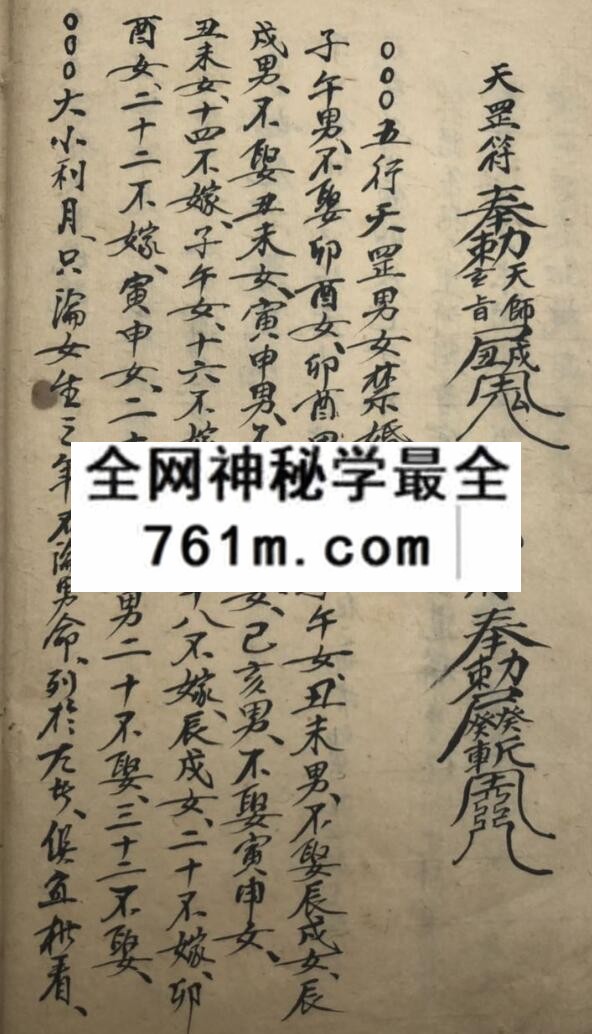 天罡符
奉勅天師
玄旨
奉勅
癸癸斬
○○○五行天罡男女禁婚
子午男、不娶卯酉女、卯酉男
午女、丑未男、不娶辰戌女、辰
戌男、不娶丑未女、寅申男、不
女、巳亥男、不娶寅申女、
丑未女、十四不嫁、子午女、十六不嫁
十八不嫁、辰戌女、二十不嫁、卯
酉女、二十二不嫁、寅申女、二十
男二十不娶、三十二不娶、
○○○大小利月、只淪女生之年、不淪男命、列於左、俱宜批看、
全网神秘学最全
761m.com